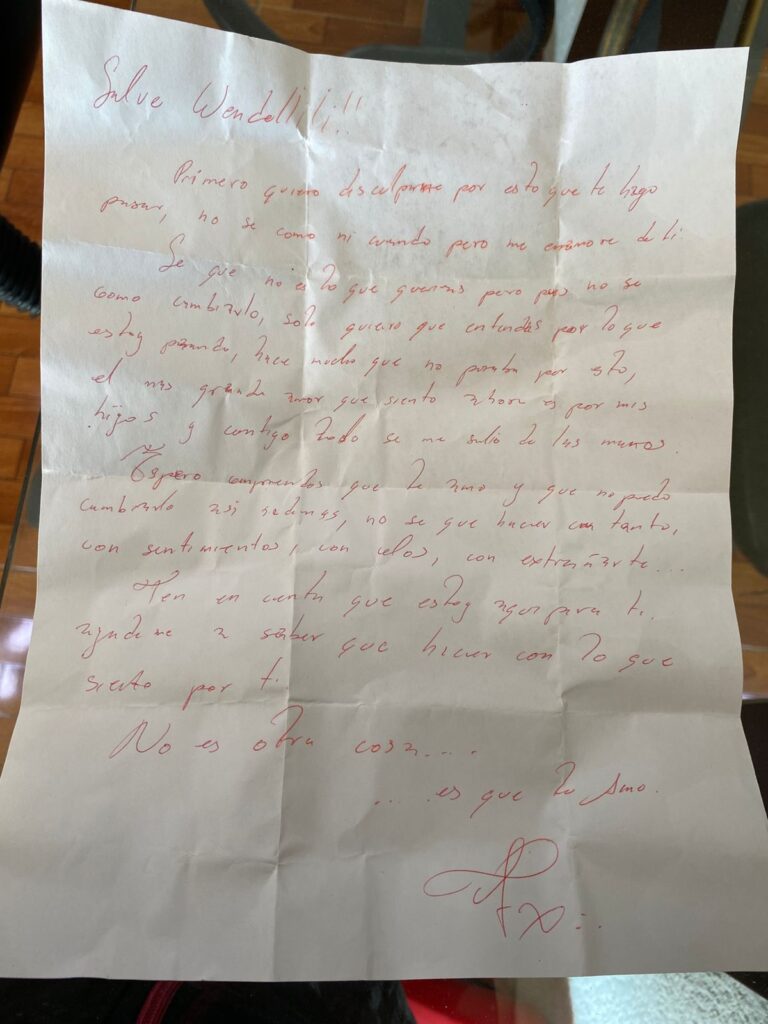 Salve Wendollili!!
Primero quiero disculparme por esto que te hago
pasar, no se como ni cuando pero me enamore de ti
Se que no es lo que querias pero pues no se
como cambiarlo, solo quiero que entiendas por lo que
estoy pasando, hace mucho que no pasaba por esto,
el mas grande amor que siento ahora es por mis
hijos y contigo todo se me salió de las manos.
Espero comprendas que te amo y que no puedo
cambiarlo asi nadamas, no se que hacer con tanto,
con sentimientos, con celos, con extrañarte...
Ten en cuenta que estoy aqui para ti.
ayudame a saber que hacer con lo que
siento por ti.
No es otra cosa....
.... es que te Amo.